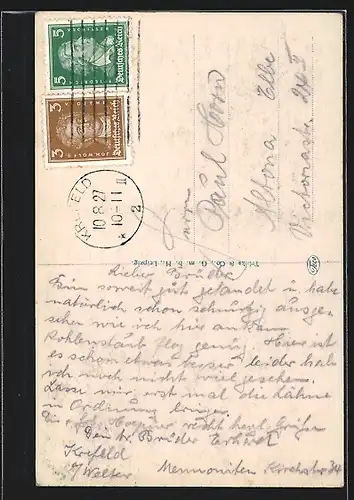 5
5
Deutsches Reich
3
3
Deutsches Reich
KREFELD
10.8.27
10-11
* 2
Herrn
Paul Horn
Altona Elbe
Victoriastr.
Trinks & Co., G. m. b. H., Leipzig
Lieber Bruder
Bin soweit gut gelandet u. habe
natürlich schon schmutzig ausge-
sehen wie ich hier ankam
Kohlenstaub flog genug. Hier ist
es schon etwas besser, leider habe
ich noch nicht viel gesehen.
Lasse mir erst mal die Zähne
in Ordnung bringen.
recht herzl. Grüße
Dein tr. Bruder Erhard
Krefeld
Mennoniten Kirchstr 34